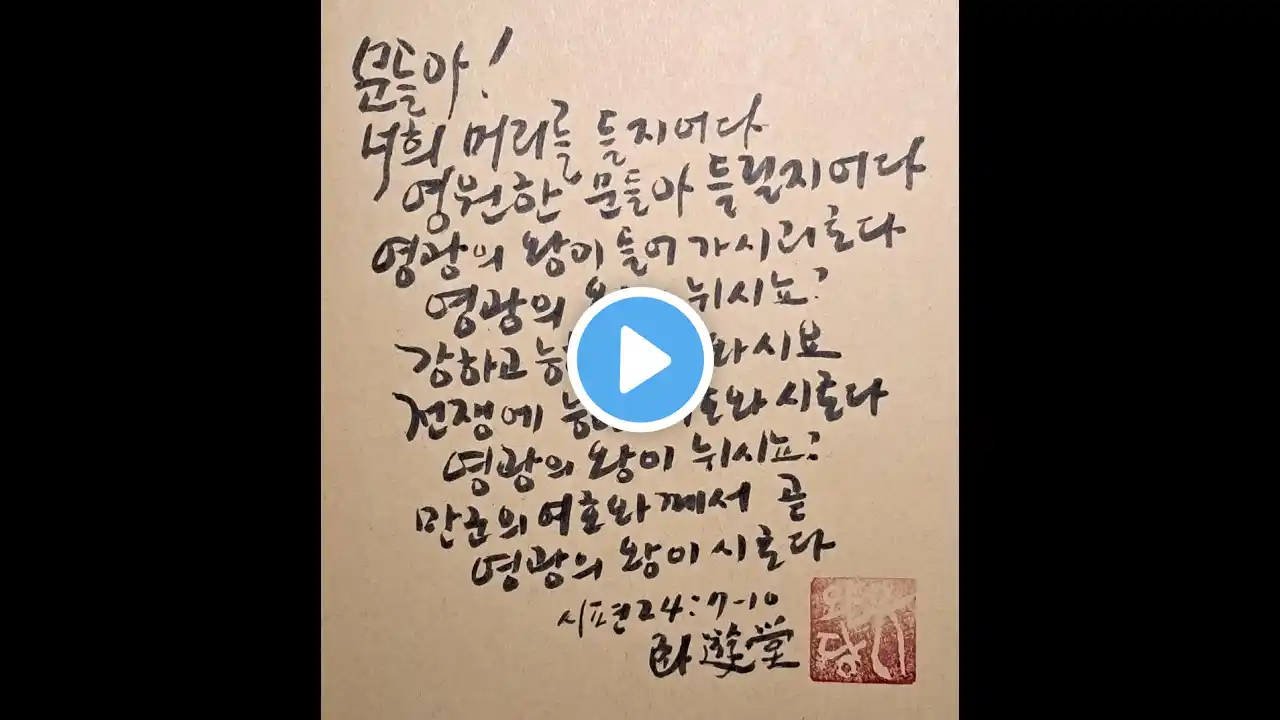 문들아!
너희 머리를 들지어다
영원한 문들아 들릴지어다
영광의 왕이 들어 가시리로다
영광의 뉘시뇨?
강하고 시요
전쟁에 시로다
영광의 왕이 뉘시뇨?
만군의 여호와께서 곧
영광의 왕이시로다
시편 24:7-10
遊堂